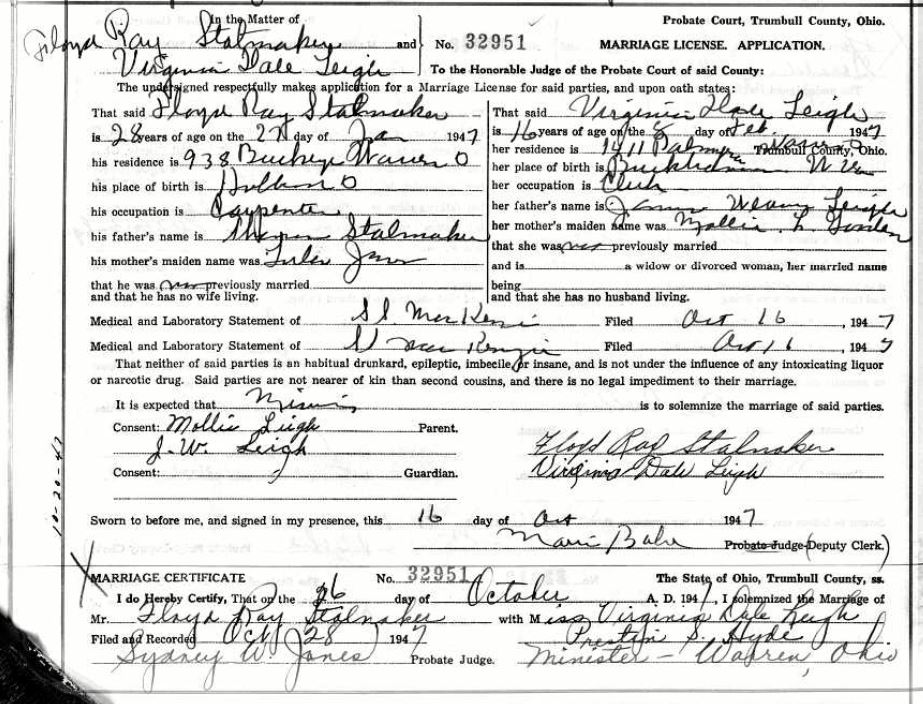 In the Matter of
Floyd Ray Stalnaker
and
Virginia Dale Leigh
Probate Court, Trumbull County, Ohio.
No. 32951 MARRIAGE LICENSE. APPLICATION.
To the Honorable Judge of the Probate Court of said County:
The undersigned respectfully makes application for a Marriage License for said parties, and upon oath states:
That said Floyd Ray Stalnaker
is 28 years of age on the 27 day of Jan 1947
his residence is 938 Buckeye Warren O
his place of birth is O
his occupation is Carpenter
his father's name is Stalnaker
his mother's maiden name was
that he was previously married
and that he has no wife living.
That said Virginia Dale Leigh
is 16 years of age on the 8 day of Feb. 1947
her residence is 1411 Palmyra Warren Trumbull County, Ohio.
her place of birth is W Va
her occupation is Clerk
her father's name is James Leigh
her mother's maiden name was Mollie L.
that she was previously married
and is a widow or divorced woman, her married name
being
and that she has no husband living.
Medical and Laboratory Statement of Filed Oct 16, 1947
Medical and Laboratory Statement of Filed Oct 16 1947
That neither of said parties is an habitual drunkard, epileptic, imbecile or insane, and is not under the influence of any intoxicating liquor
or narcotic drug. Said parties are not nearer of kin than second cousins, and there is no legal impediment to their marriage.
It is expected that Minister is to solemnize the marriage of said parties.
Consent: Mollie Leigh Parent.
J. W. Leigh
Floyd Ray Stalnaker
Consent: Guardian.
Virginia Dale Leigh
10-20-47
Sworn to before me, and signed in my presence, this 16 day of Oct 1947
Probate Judge (Deputy Clerk.)
MARRIAGE CERTIFICATE No. 32951 The State of Ohio, Trumbull County, ss.
I do Hereby Certify, That on the 26 day of October A. D. 1947, I solemnized the Marriage of
Mr. Floyd Ray Stalnaker with Miss Virginia Dale Leigh
Filed and Recorded Oct 28 1947 Preston S. Hyde
Sydney W. Jones Probate Judge. Minister - Warren, Ohio